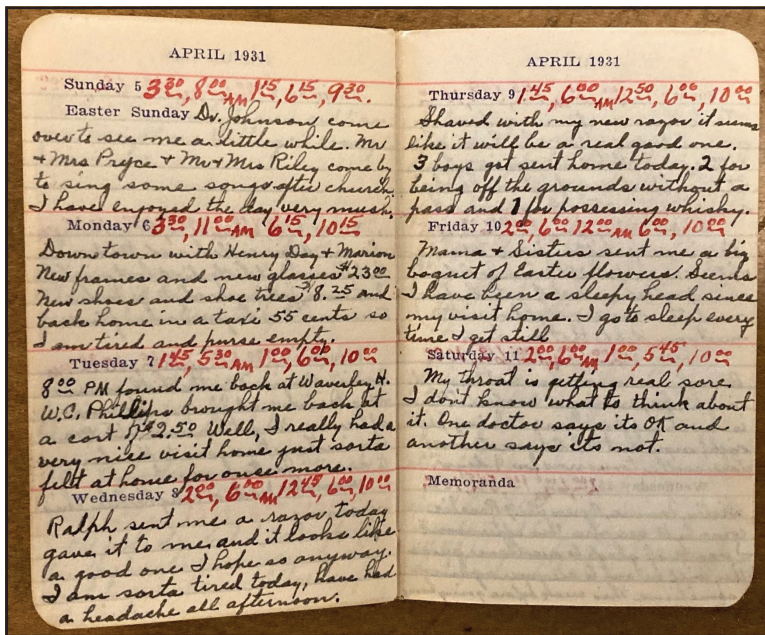 APRIL 1931
Sunday 5 3 30, 8 00 AM 1 15, 6 15, 9 30.
Easter Sunday Dr. Johnson come
over to see me a little while. Mr
+ Mrs Pryce + Mr + Mrs Riley come by
to sing some songs after church
I have enjoyed the day very mush.
Monday 6 3 30, 11 00 AM 6 15, 10 15
Down town with Henry Day + Marion
New frames and new glasses $23 00
New shoes and shoe trees $18.25 and
back home in a taxi 55 cents so
I am tired and purse empty.
Tuesday 7 1 45, 5 30 AM 1 00, 6 00, 10 00
8 00 PM found me back at Waverley H.
W.C. Phillips brought me back at
a cost of $2.50 Well, I really had a
very nice visit home just sorta
felt at home for once more.
Wednesday 8 2 00, 6 00 AM 12 45, 6 00, 10 00
Ralph sent me a razor today
gave it to me and it looks like
a good one I hope so anyway.
I am sorta tired today, have had
a headache all afternoon.
APRIL 1931
Thursday 9 1 45, 6 00 AM 12 50, 6 00, 10 00
Shaved with my new razor it seems
like it will be a real good one.
3 boys got sent home today. 2 for
being off the grounds without a
pass and 1 for possessing whisky.
Friday 10 2 00, 6 00 12 00 AM 6 00, 10 00
Mama + Sisters sent me a big
boquet of Easter flowers. Seems
I have been a sleepy head since
my visit home. I go to sleep every
time I get still
Saturday 11 2 00, 6 00 AM 1 00, 5 45, 10 00
My throat is getting real sore
I don't know what to think about
it. One doctor says its OK and
another says its not.
Memoranda